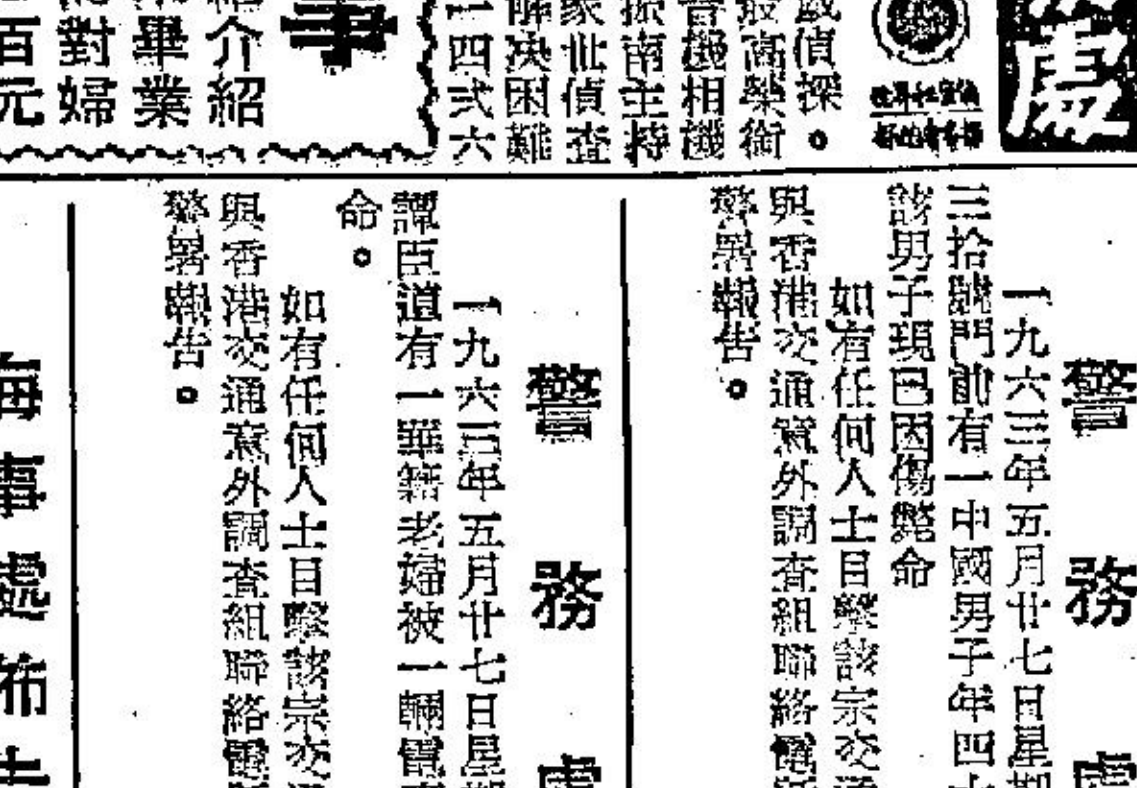 處
偵探。
高榮銜
機相機
振南主持
家壯偵查
解決困難
一四弍六
介紹
畢業
對婦
百元
警務處
一九六三年五月廿七日星期
三拾號門前有一中國男子年四十
該男子現已因傷斃命
如有任何人士目擊該宗交通
與香港交通意外調查組聯絡電話
警署報告。
警務處
一九六三年五月廿七日星期
譚臣道有一華籍老婦被一輛電車
命。
如有任何人士目擊該宗交通
與香港交通意外調查組聯絡電話
警署報告。
海事處佈告